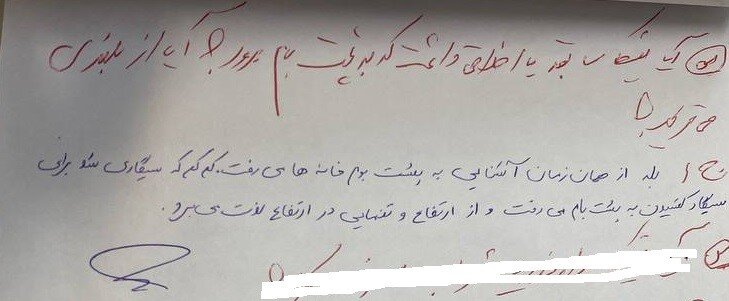 س) آیا نیکا سابقه یا اخلاقی داشت که به پشت بام برود؟ آیا از بلندی
می‌ترسید؟
ج) بله از همان زمان آشنایی به پشت بوم خانه هامی رفت. کم کم که سیگاری شد برای
سیگار کشیدن به پشت بام می رفت و از ارتفاع و تنهایی در ارتفاع لذت می برد.
س)